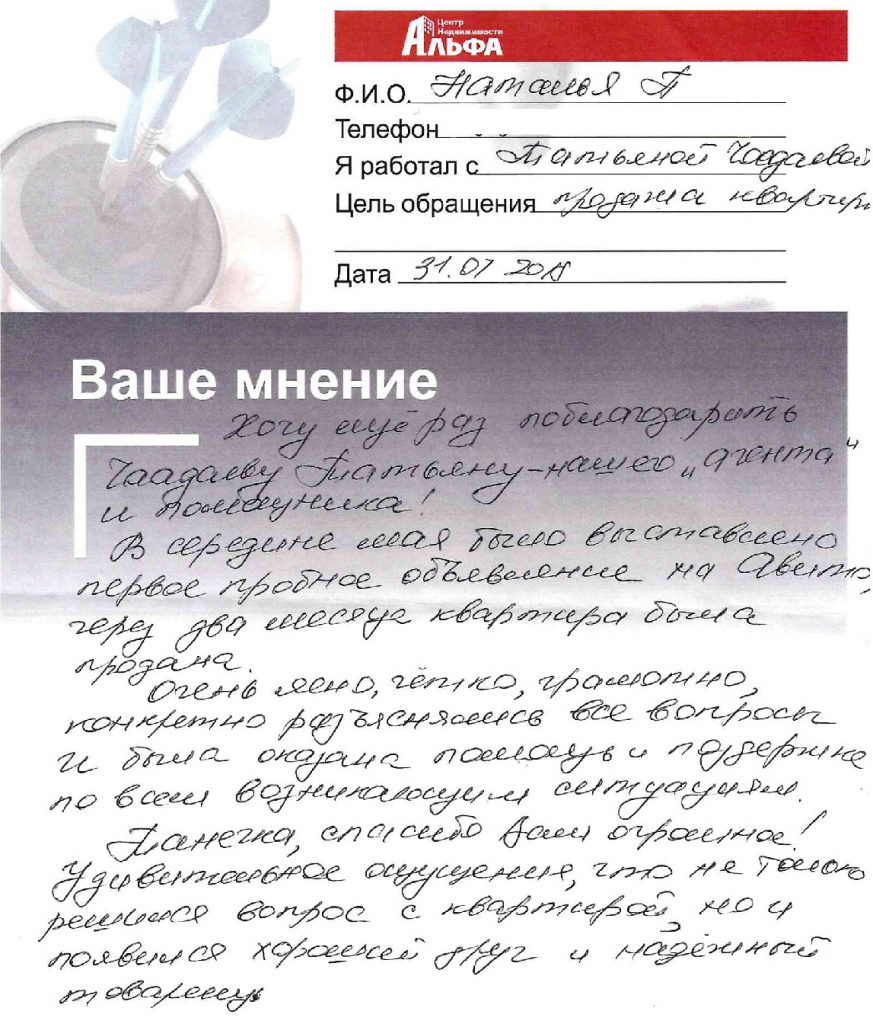 Центр
Недвижимости
АЛЬФА
Ф.И.О. Наталья П
Телефон
Я работал с Татьяной Чаадаевой
Цель обращения продажа квартиры
Дата 31.07 2015
Ваше мнение
Хочу ещё раз поблагодарить
Чаадаеву Татьяну - нашего "агента"
и помощника!
В середине мая было выставлено
первое пробное объявление на Авито,
через два месяца квартира была
продана.
Очень ясно, чётко, грамотно,
конкретно разъяснялись все вопросы
и была оказана помощь и поддержка
по всем возникающим ситуациям.
Танечка, спасибо Вам огромное!
Удивительное ощущение, что не только
решился вопрос с квартирой, но и
появился хороший друг и надёжный
товарищ